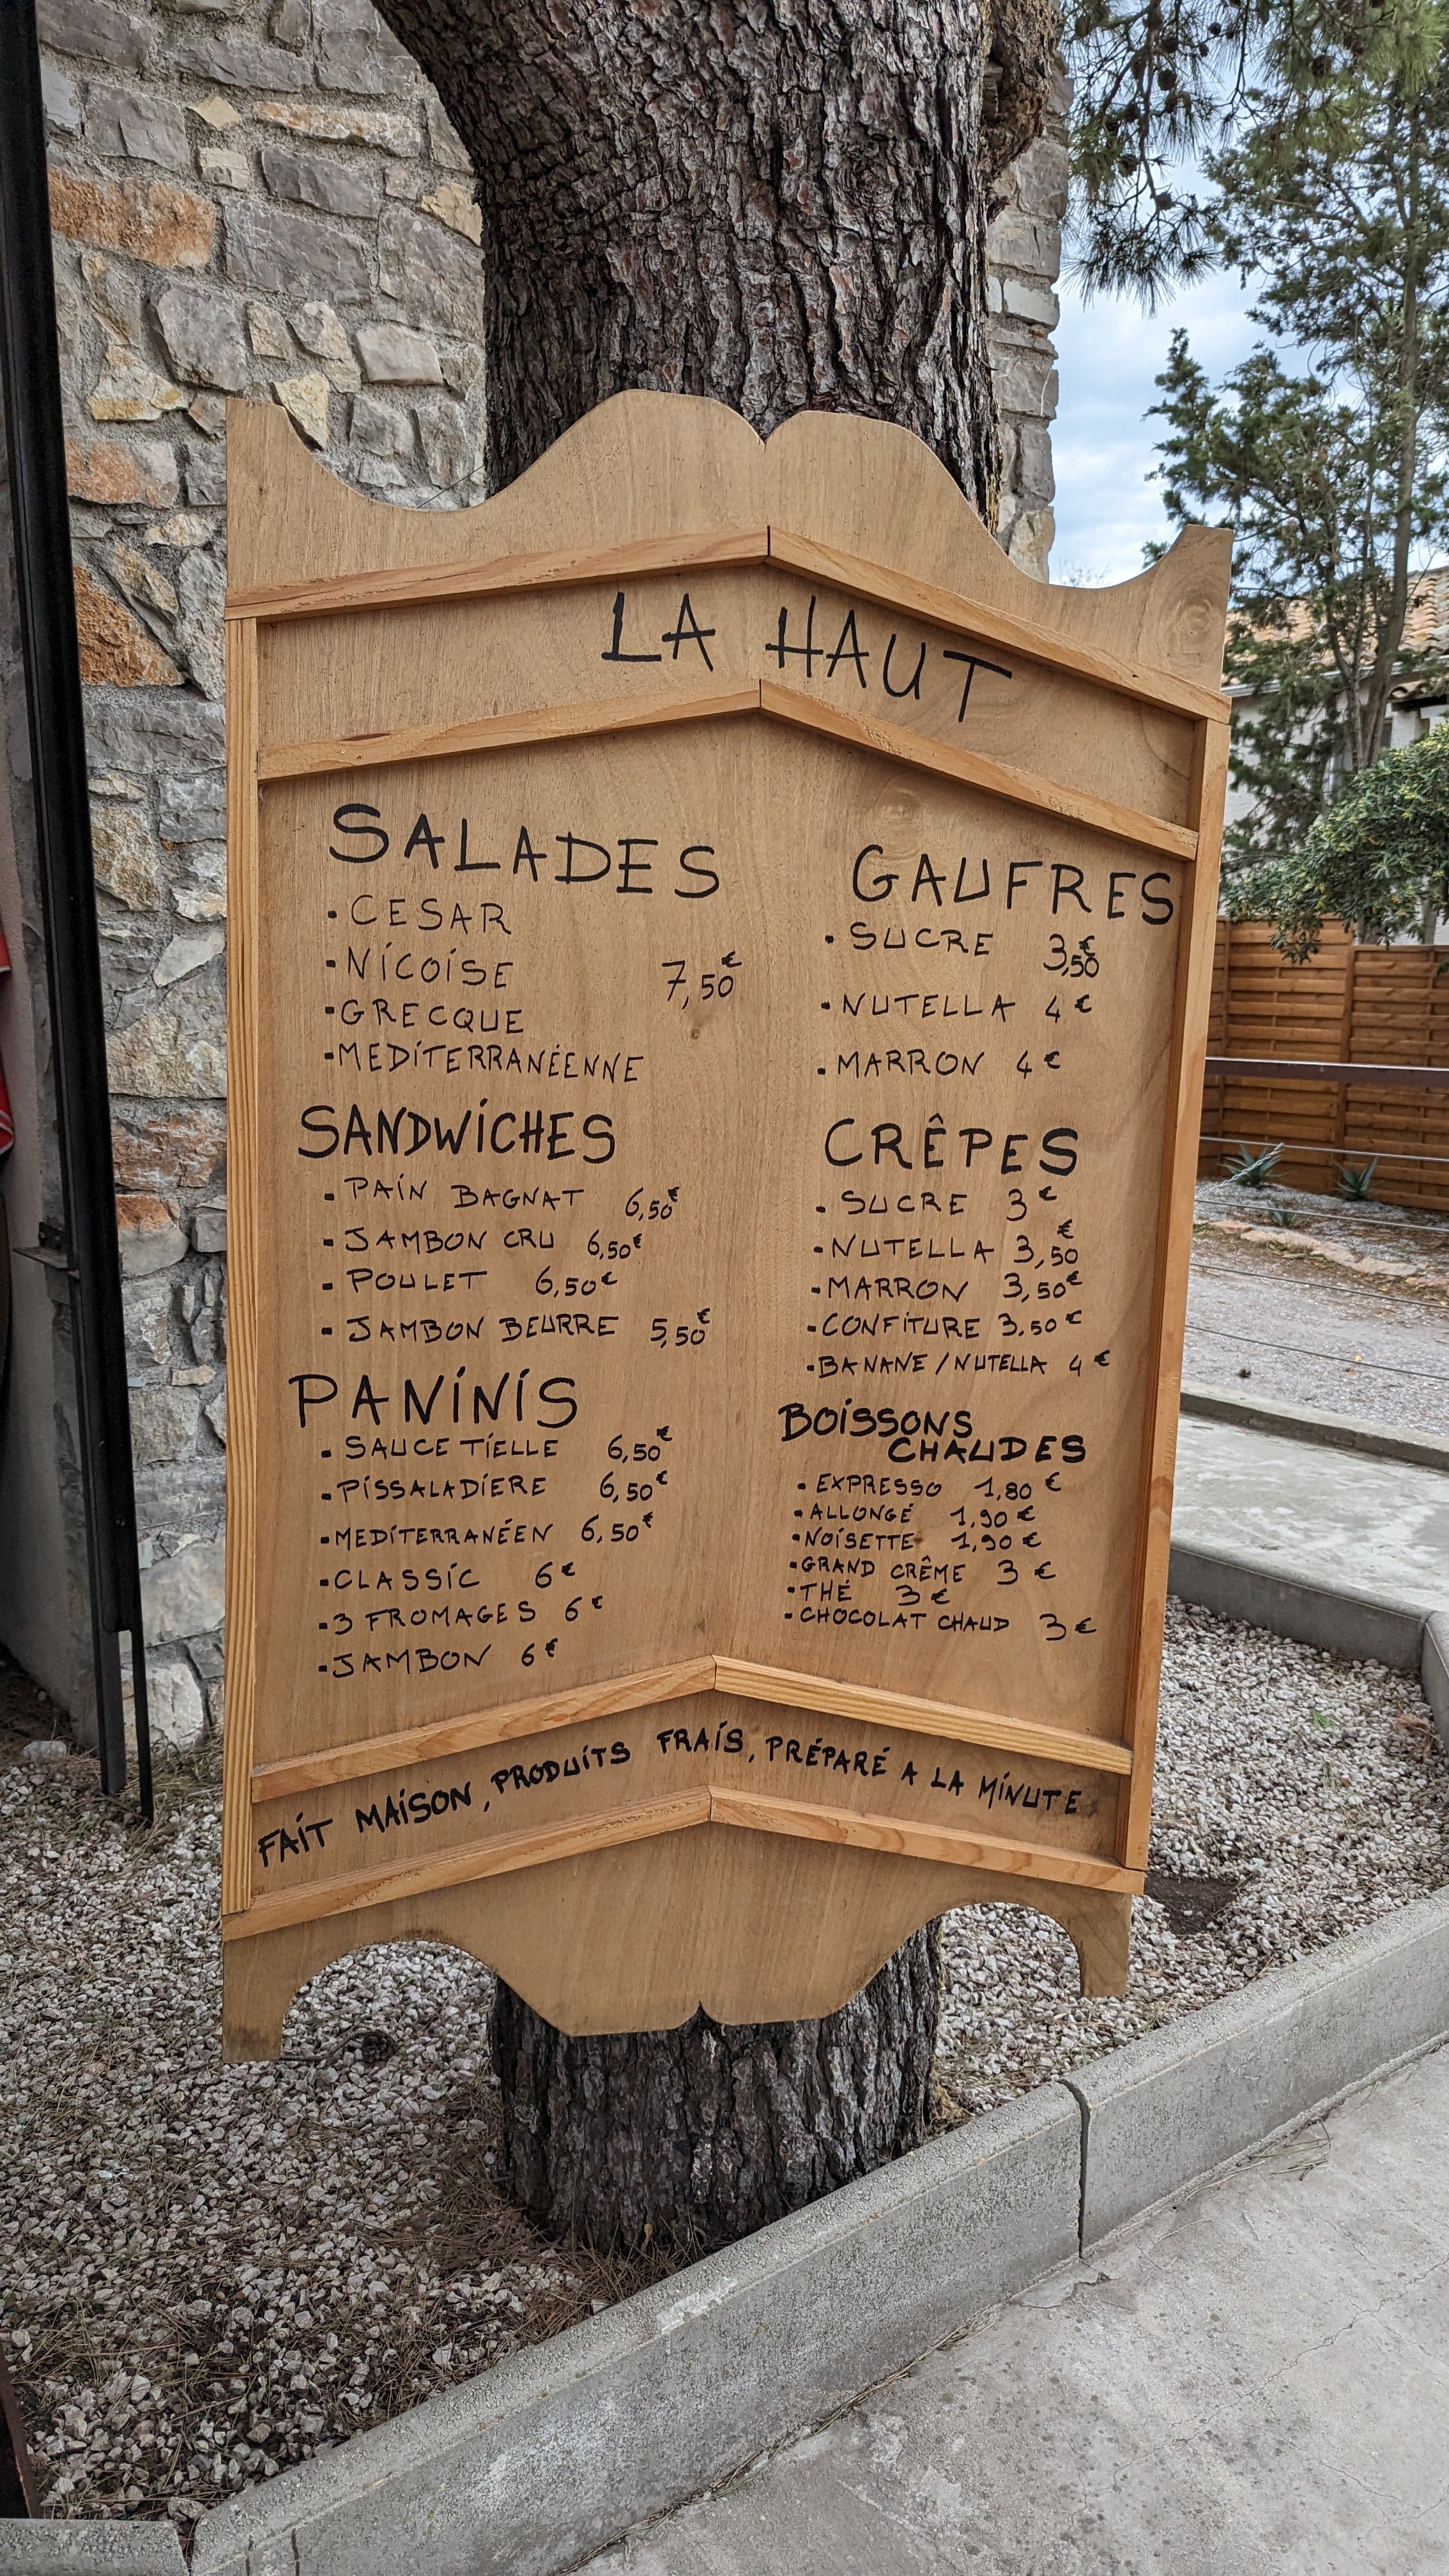 LA HAUT
SALADES
• CESAR
• NICOISE
7,50€
• GRECQUE
• MEDITERRANÉENNE
SANDWICHES
• PAIN BAGNAT 6,50€
• JAMBON CRU 6,50€
• POULET 6,50€
• JAMBON BEURRE 5,50€
PANINIS
• SAUCE TIELLE 6,50€
• PISSALADIERE 6,50€
• MEDITERRANÉEN 6,50€
• CLASSIC 6€
• 3 FROMAGES 6€
• JAMBON 6€
GAUFRES
• SUCRE 3,50€
• NUTELLA 4€
• MARRON 4€
CRÊPES
• SUCRE 3€
• NUTELLA 3,50€
• MARRON 3,50€
• CONFITURE 3.50€
• BANANE/NUTELLA 4€
BOISSONS
CHAUDES
• EXPRESSO 1,80€
• ALLONGÉ 1,90€
• NOISETTE 1,90€
• GRAND CRÊME 3€
• THÉ 3€
• CHOCOLAT CHAUD 3€
FAIT MAISON, PRODUITS FRAIS, PRÉPARÉ A LA MINUTE